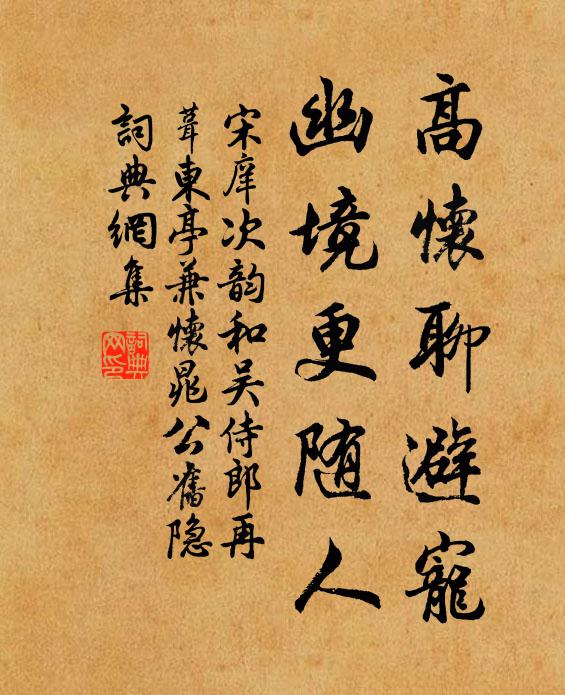 高懷聊避寵
幽境更隨人
宋庠次韵和吴侍郎再
葺東亭兼懷晁公舊隐
詞典網集
詞典
网印